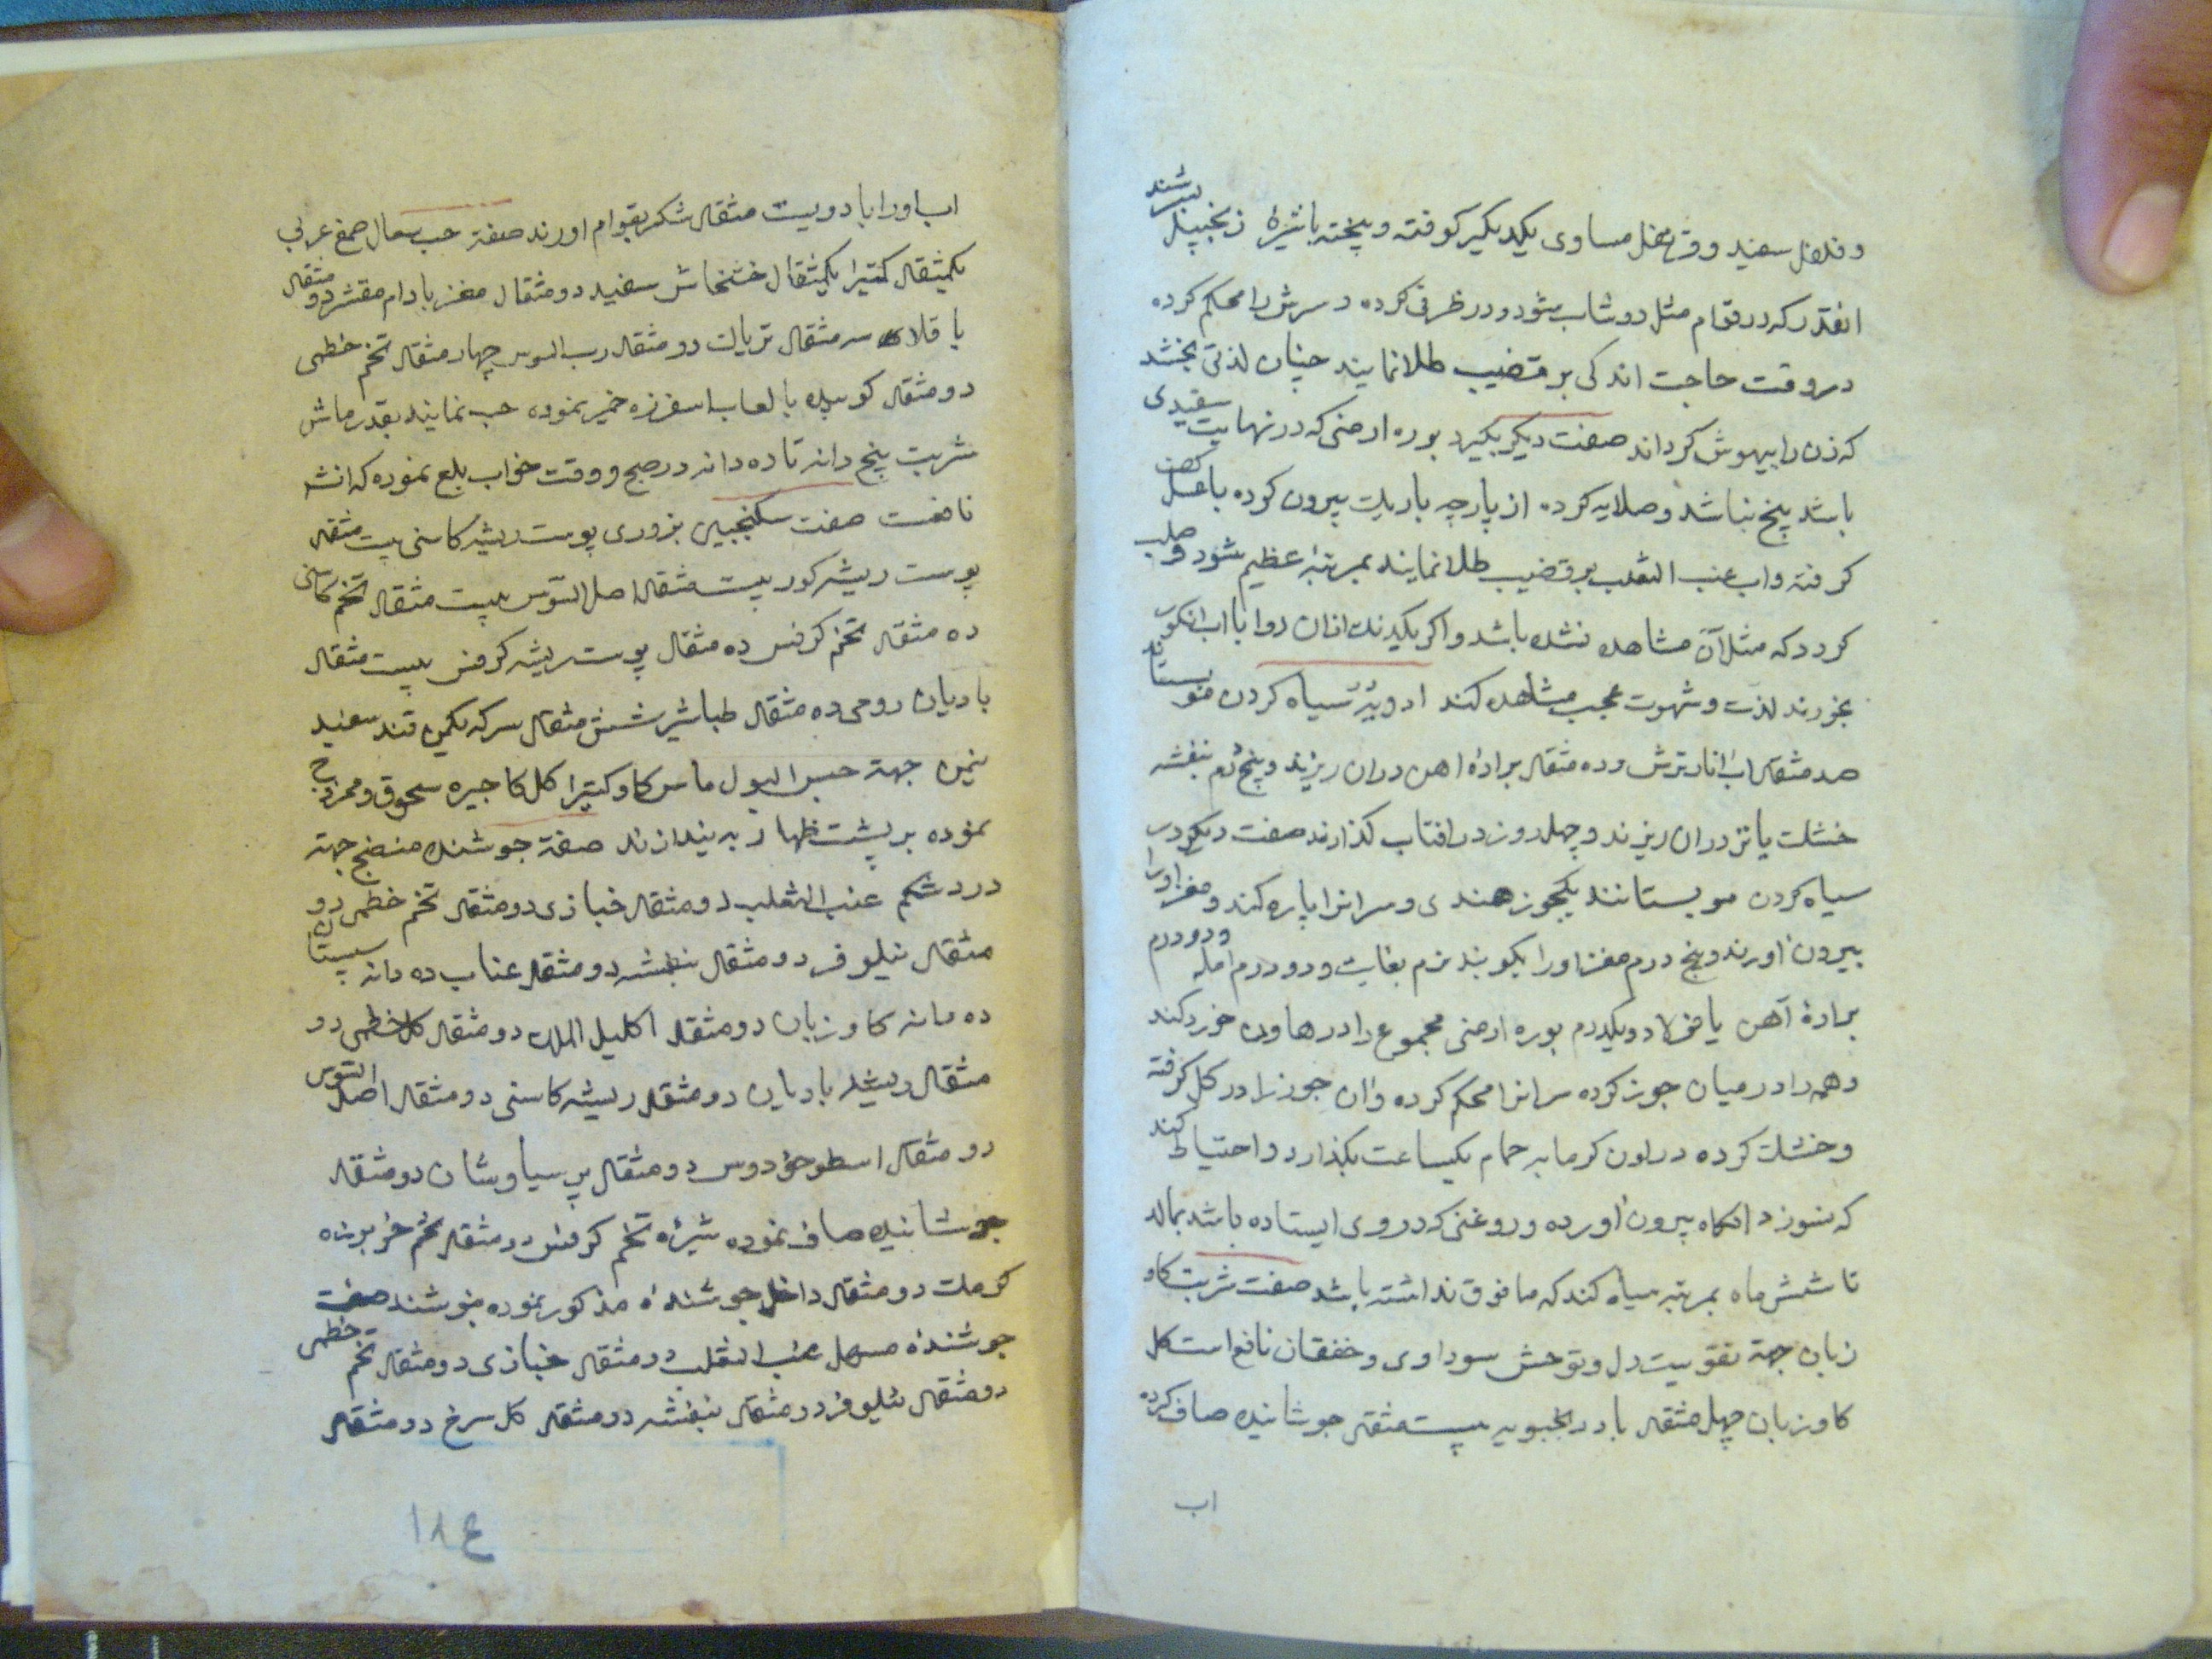 و فلفل سفید و قرنفل مساوی یکدیکیر کوفته و پیخته باشیرهٔ زنجبیل بسرشند
انقدر که در قوام مثل دوشاب شود و در ظرفی کرده و سرش را محکم کرده
در وقت حاجت اندکی بر قضیب طلا نمایند چنان لذتی بخشد
که زن را بیهوش کرداند صفت دیکر بکیرد بوره ارمنی که در نهایت سفیدی
باشد پنج نباشد و صلایه کرده از پارچه باریک بیرون کرده با عسل کف
کرفته و اب عنب الثعلب بر قضیب طلا نمایند بمرتبهٔ عظیم شود و صلب
کردد که مثل آن مشاهده نشده باشد و اکر یکدنک ازان دوا با اب انکور
بخورند لذت و شهوت عجب مشاهده کند ادویهٔ سیاه کردن مو بستاند
صد مثقال اب انار ترش و ده مثقال برادهٔ اهن دران ریزند و پنج درم بنفشه
خشک یا تر دران ریزند و چهل روز در افتاب کذارند صفت دیکر در
سیاه کردن مو بستانند یکجوز هندی و سر انرا پاره کند و مغز اورا
بیرون اورند و پنج درم مغز اورا بکوبند نرم بغایت و دو درم امله و دو درم
برادهٔ آهن یا فولاد و یکدرم بوره ارمنی مجموع را در هاون خورد کند
و همه را در میان جوز کرده سر انرا محکم کرده و ان جوز را در کل کرفته
و خشک کرده در اون کرمابه حمام یکساعت بکذارد و احتیاط کند
که نسوزد انکاه بیرون اورده و روغنی که در وی ایستاده باشد بمالد
تا شش ماه بمرتبه سیاه کند که مافوق نداشته باشد صفت شربت کاو
زبان جهة تقویت دل و توحش سوداوی و خفقان نافع است کل
کاوزبان چهل مثقال بادرنجبویه بیست مثقال جوشانیده صاف کرده
اب
اب اورا با دویست مثقال شکر بقوام اورند صفة حب سعال صمغ عربی
یکمثقال کتیرا یکمثقال خشخاش سفید دو مثقال مغز بادام مقشر دو مثقال
باقلا سه مثقال تریاک دو مثقال رب السوس چهار مثقال تخم خطمی
دو مثقال کوبیده با لعاب اسفرزه خمیر نموده حب نمایند بقدر ماش
شربت پنج دانه تا ده دانه در صبح و وقت خواب بلع نموده که انشا
نافعست صفت سکنجبین بزوری پوست ریشه کاسنی بیست مثقال
پوست ریشه کور بیست مثقال اصل السوس بیست مثقال تخم کاسنی
ده مثقال تخم کرفس ده مثقال پوست ریشه کرفس بیست مثقال
بادیان رومی ده مثقال طباشیر شش مثقال سرکه یکمن قند سفید
نیمن جهة حبس البول کتیرا کل کاجیره سحوق و ممزوج
نموده بر پشت ظهار به بندازند صفة جوشنده منضج جهة
درد شکم عنب الثعلب دو مثقال خبازی دو مثقال تخم خطمی دو
مثقال نیلوفر دو مثقال بنفشه دو مثقال عناب ده دانه سپستان
ده دانه کاوزبان دو مثقال اکلیل الملک دو مثقال کل خطمی دو
مثقال ریشه بادیان دو مثقال ریشه کاسنی دو مثقال اصل السوس
دو مثقال اسطوخودوس دو مثقال پر سیاوشان دو مثقال
جوشانیده صاف نموده شیرهٔ تخم کرفس دو مثقال تخم خربوزه
کرمک دو مثقال داخل جوشندهٔ مذکور نموده بنوشند صفت
جوشندهٔ مسهل عنب الثعلب دو مثقال خبازی دو مثقال تخم خطمی
دو مثقال نیلوفر دو مثقال بنفشه دو مثقال کل سرخ دو مثقال
۱۸۴